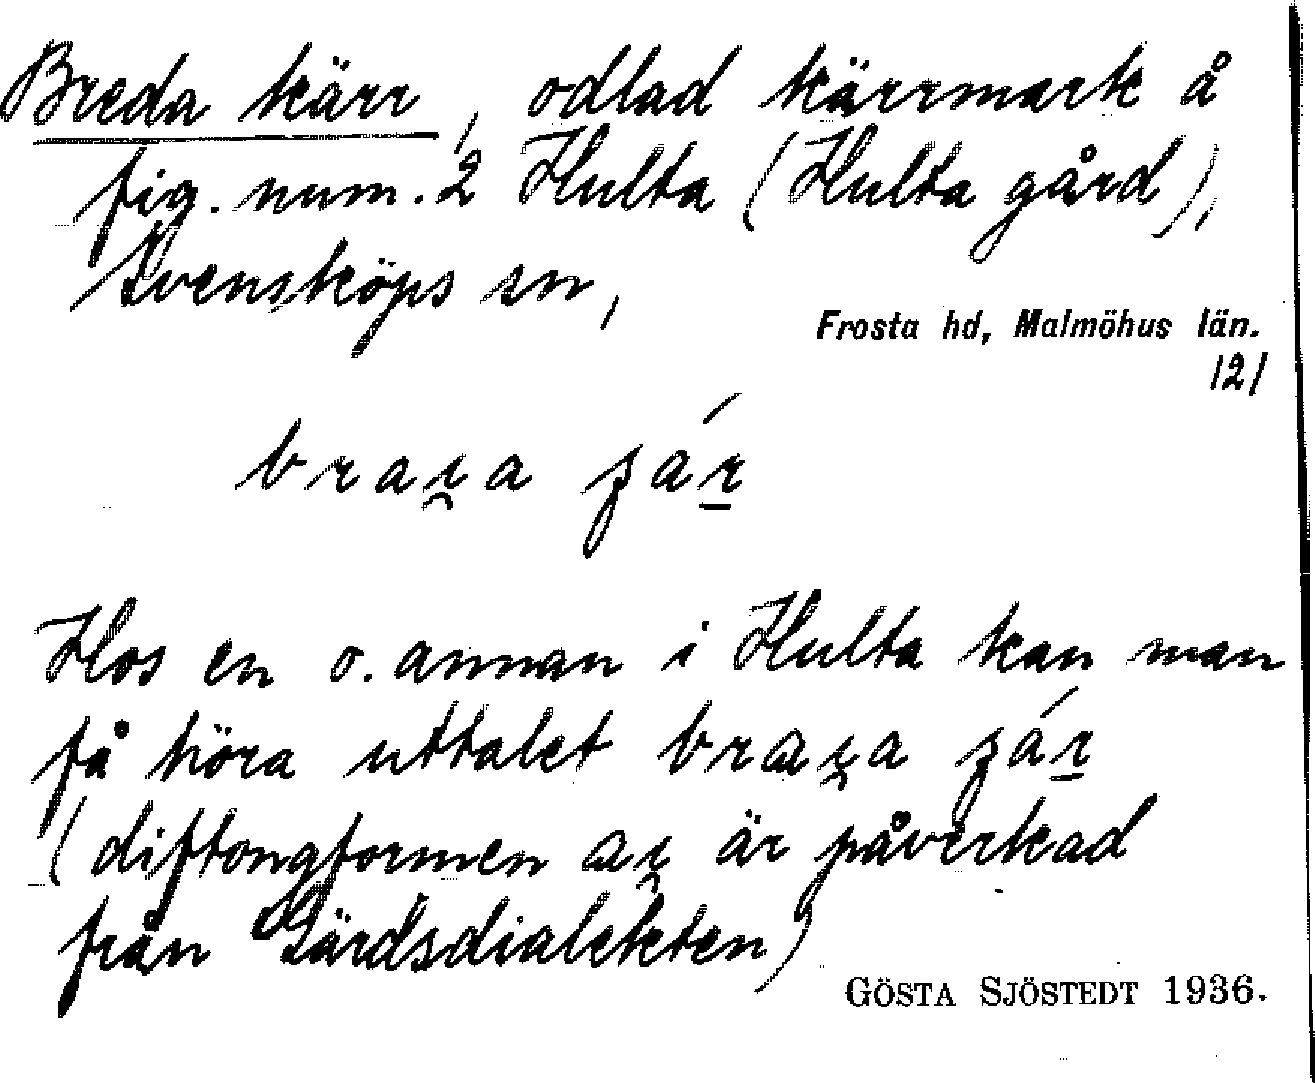 Breda kärr, odlad kärrmark å
fig. num. 2 Hulta (Hulta gård),
Svensköps sn,
Frosta hd, Malmöhus län.
121
Hos en o. annan i Hulta kan man
få höra uttalet
(diftongformen är påverkad
från Gärdsdialekten)
GÖSTA SJÖSTEDT 1936.